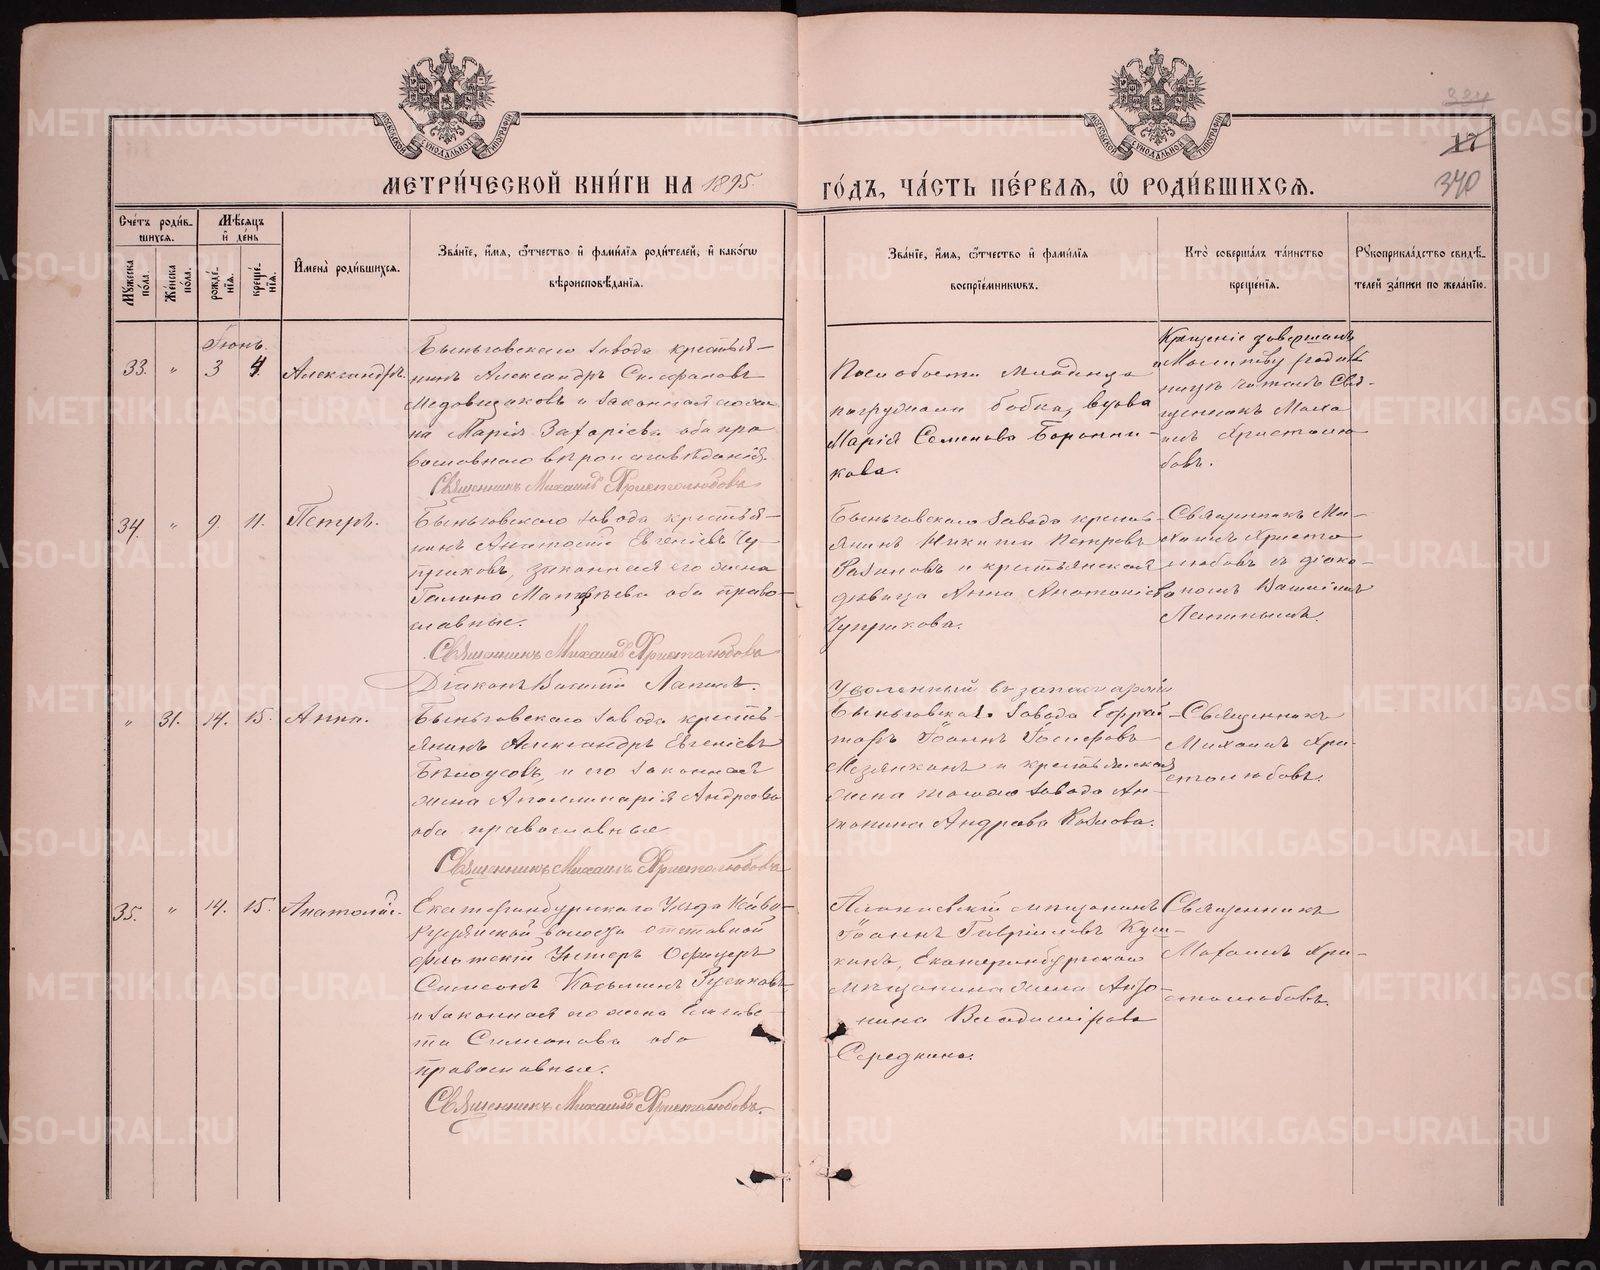 МЕТРИ́ЧЕСКОЙ КНИ́ГИ НА 1895.
ГО́ДЪ, ЧА́СТЬ ПЕ́РВАѦ, Ѽ РОДИ́ВШИХСѦ.
17
340
Сче́тъ роди́в-
шихсѧ.
Мꙋжеска по́ла.
Же́нска по́ла.
Мѣ́сѧцъ
и҆ де́нь
рожде́-
нїѧ.
креще́-
нїѧ.
И҆мена̀ роди́вшихсѧ.
Зва́нїе, и҆́мѧ, ѻ҆́тчество и҆ фами́лїѧ роди́телей, и҆ како́гѡ
вѣроисповѣ́данїѧ.
Зва́нїе, и҆́мѧ, ѻ҆́тчество и҆ фами́лїѧ
воспрїе́мникѡвъ.
Кто̀ соверша́лъ та́инство
креще́нїѧ.
Рꙋкоприкла́дство свидѣ́-
телей за́писи по жела́нїю.
Іюнь.
33. " 3 4. Александръ.
Быньговскаго завода крестья-
нинъ Александръ Стефановъ
Медовщиковъ и законная его же-
на Марія Захаріева оба пра
вославнаго вѣроисповѣданія.
Священникъ Михаилъ Христолюбовъ
погружала бабка, вдова
Марія Семенова Боронни-
кова.
Крещеніе довершалъ
и Молитву родиль
ницѣ читалъ Свя-
щенникъ Миха
илъ Христолю
бовъ.
34. " 9. 11. Петръ.
Быньговскаго завода крестья-
нинъ Анатолій Евгеніевъ Чу-
приковъ, законная его жена
Галина оба право-
славные.
Священникъ Михаилъ Христолюбовъ
Діаконъ Василій Лапинъ.
Быньговскаго завода кресть-
янинъ Никита Петровъ
и крестьянская
дѣвица Анна
Чуприкова.
Священникъ Ми-
хаилъ Христо
любовъ съ діако-
номъ Василіемъ
" 31. 14. 15. Анна.
Быньговскаго завода кресть-
янинъ Александръ Евгеніевъ
Бѣлоусовъ и его законная
жена Аполлинарія Андреева
оба православные
Священникъ Михаилъ Христолюбовъ
Уволенный въ запасъ арміи
Быньговскаго завода Ефрей-
торъ Іоаннъ Іосифовъ
и крестьянская
жена того же завода Ан-
тонина Козлова.
Священникъ
Михаилъ Хри-
столюбовъ.
35. " 14. 15. Анатолій.
Екатеринбургскаго Уѣзда
волости отставной
флотскій Унтеръ Офицеръ
Симеонъ Козьминъ
и законная его жена Елизаве-
та Симонова оба
православные.
Священникъ Михаилъ Христолюбовъ.
мѣщанинъ
Іоаннъ Гавріиловъ Куш-
кинъ, Екатеринбургскаго
Мѣщанина жена Анто-
нина Владимірова
Середкина.
Священникъ
Михаилъ Хри-
столюбовъ.